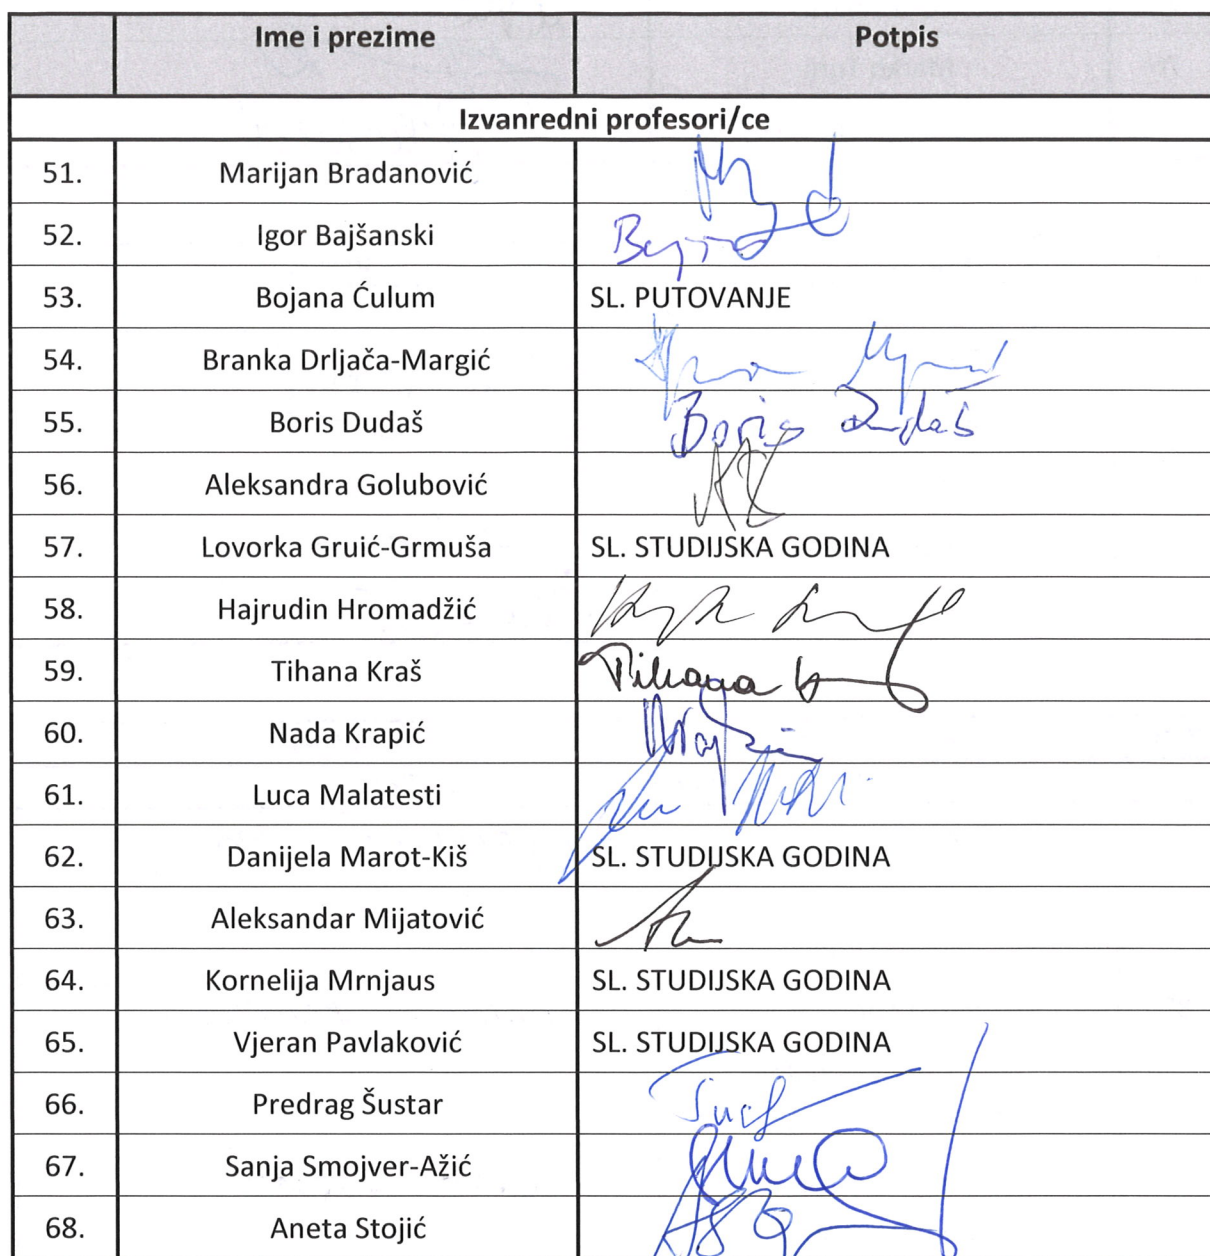 Ime i prezime Potpis
Izvanredni profesori/ce
51. Marijan Bradanović
52. Igor Bajšanski
53. Bojana Ćulum SL. PUTOVANJE
54. Branka Drljača-Margić
55. Boris Dudaš Boris Dudaš
56. Aleksandra Golubović
57. Lovorka Gruić-Grmuša SL. STUDIJSKA GODINA
58. Hajrudin Hromadžić
59. Tihana Kraš Tihana
60. Nada Krapić
61. Luca Malatesti
62. Danijela Marot-Kiš SL. STUDIJSKA GODINA
63. Aleksandar Mijatović
64. Kornelija Mrnjaus SL. STUDIJSKA GODINA
65. Vjeran Pavlaković SL. STUDIJSKA GODINA
66. Predrag Šustar
67. Sanja Smojver-Ažić
68. Aneta Stojić